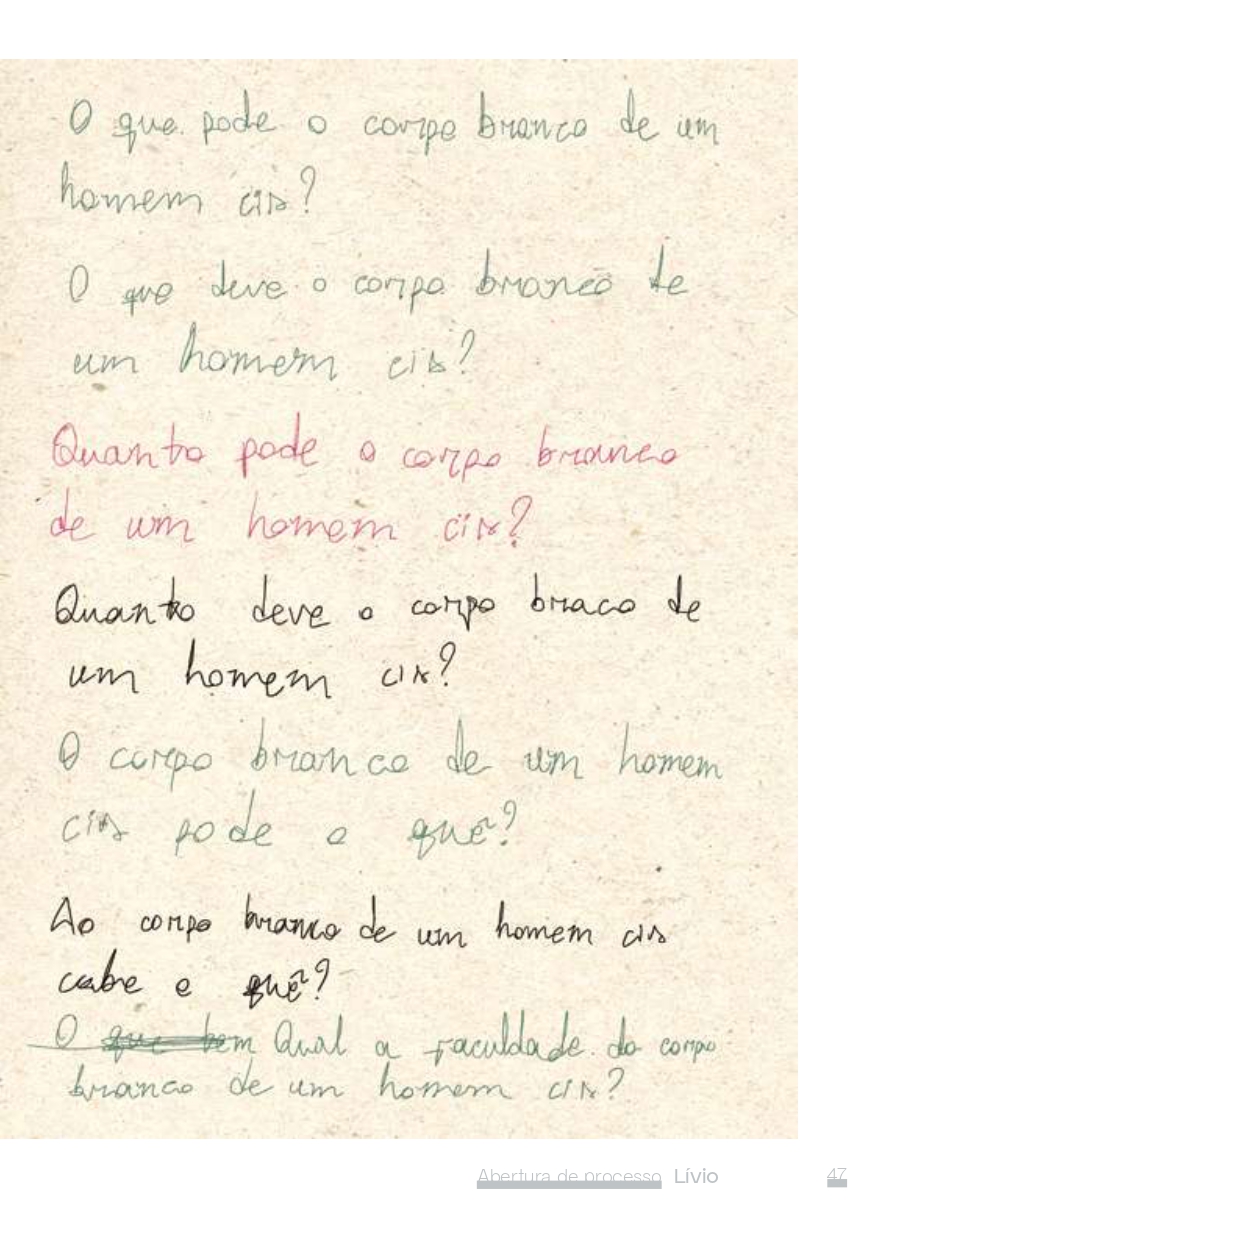 O que pode o corpo branco de um
homem cis?
O que deve o corpo branco de
um homem cis?
Quanto pode o corpo branco
de um homem cis?
Quanto deve o corpo braco de
um homem cis?
O corpo branco de um homem
cis pode o quê?
Ao corpo branco de um homem cis
cabe o quê?
O que tem Qual a faculdade do corpo
branco de um homem cis?
Abertura de processo Lívio 47